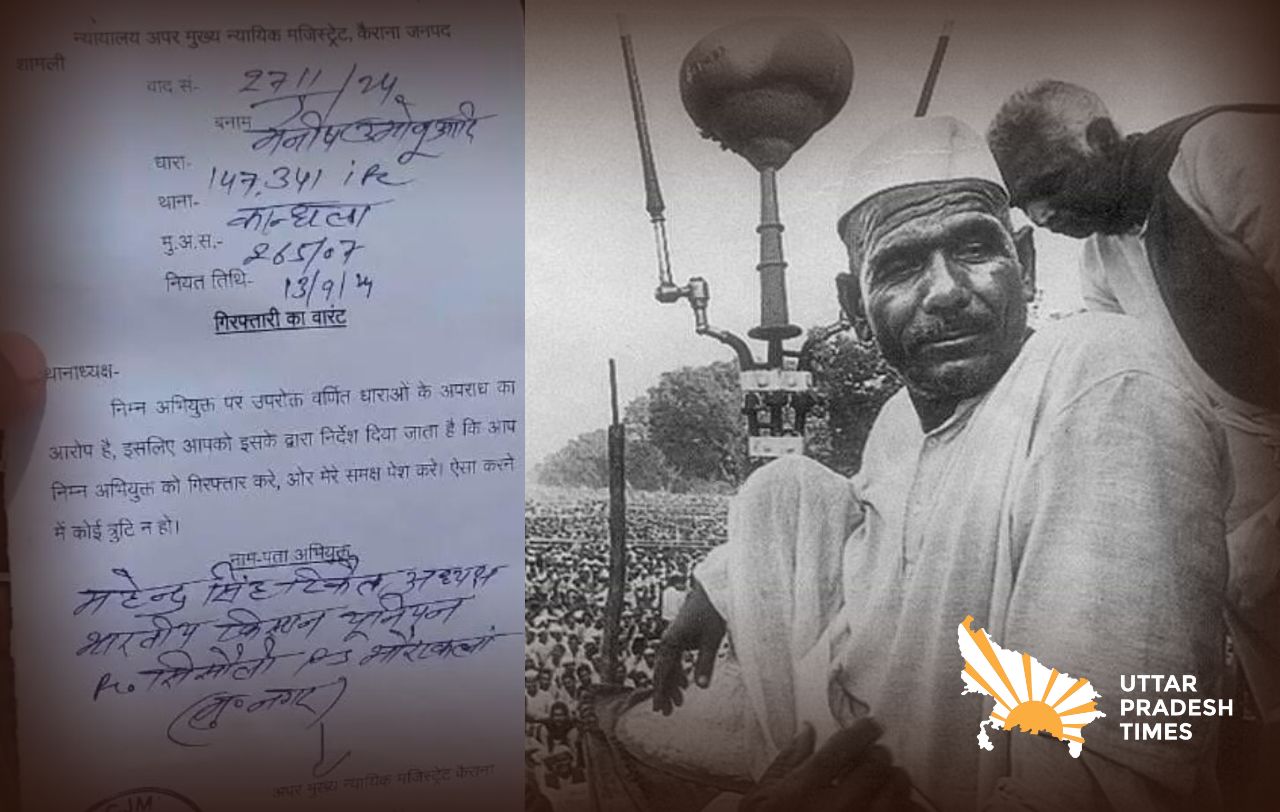 न्यायालय अपर मुख्य न्यायिक मजिस्ट्रेट, कैराना जनपद
शामली
वाद सं.- 2711/24
बनाम मनीष उर्फ मोनू आदि
धारा- 147, 341 iPc
थाना- कान्धला
मु.अ.स.- 265/07
नियत तिथि- 13/9/24
गिरफ्तारी का वारंट
थानाध्यक्ष-
निम्न अभियुक्त पर उपरोक्त वर्णित धाराओं के अपराध का
आरोप है, इसलिए आपको इसके द्वारा निर्देश दिया जाता है कि आप
निम्न अभियुक्त को गिरफ्तार करे, ओर मेरे समक्ष पेश करे। ऐसा करने
में कोई त्रुटि न हो।
नाम-पता अभियुक्त
महेन्द्र सिंह टिकैत अध्यक्ष
भारतीय किसान यूनियन
सिसौली P.S भौराकलां
(मु॰नगर)
अपर मुख्य न्यायिक मजिस्ट्रेट कैराना
CJM
UTTAR
PRADESH
TIMES